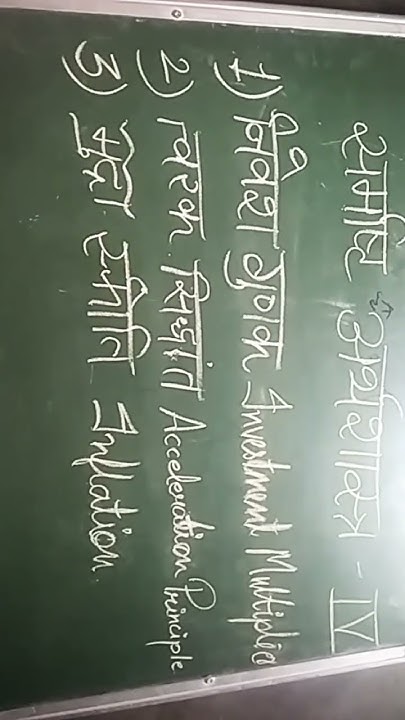 समष्टि अर्थशास्त्र - IV
1) निवेश गुणक Investment Multiplier
2) त्वरक सिद्धांत Acceleration Principle
3) मुद्रा स्फीति Inflation.